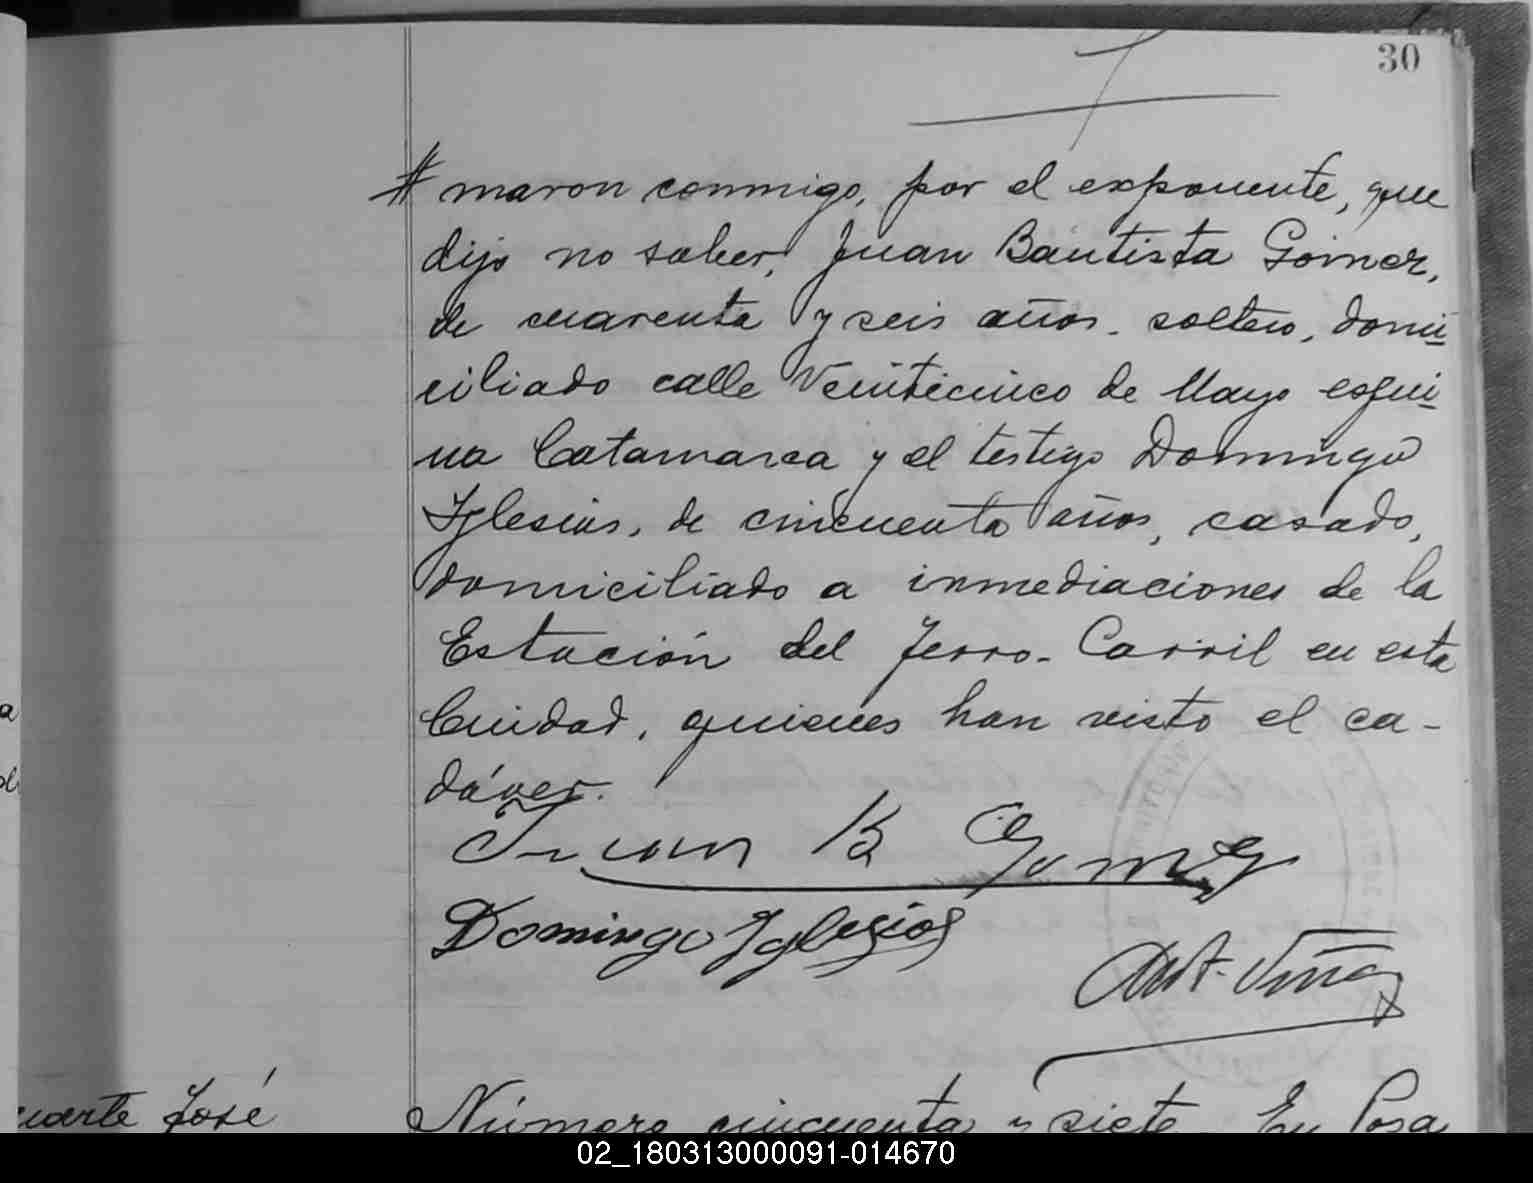 30
maron conmigo, por el exponente, que
dijo no saber, Juan Bautista Gómez,
de cuarenta y seis años, soltero, domi
ciliado calle Veinticinco de Mayo esqui
na Catamarca y el testigo Domingo
Iglesias, de cincuenta años, casado,
domiciliado a inmediaciones de la
Estación del Ferro-Carril en esta
Ciudad, quienes han visto el ca-
dáver.
Juan B Gomez
Domingo Iglesias
José
Número cincuenta y siete. En Posa
02_180313000091-014670